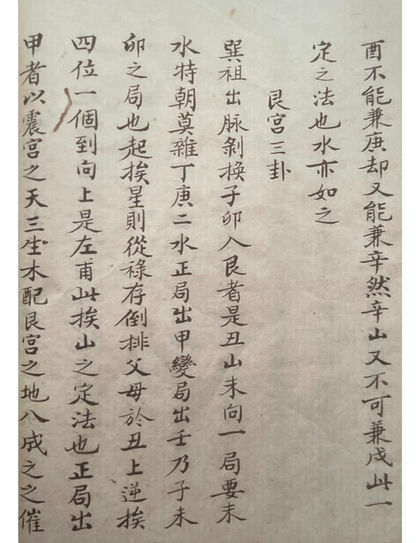 酉不能兼庚却又能兼辛然辛山又不可兼戌此一
定之法也水亦如之
艮宫三卦
巽祖出脉剝换子卯入艮者是丑山未向一局要未
水特朝莫雜丁庚二水正局出甲變局出壬乃子未
卯之局也起挨星則從祿存倒排父母於丑上逆挨
四位一個到向上是左甫此挨山之定法也正局出
甲者以震宫之天三生木配艮宫之地八成之之催